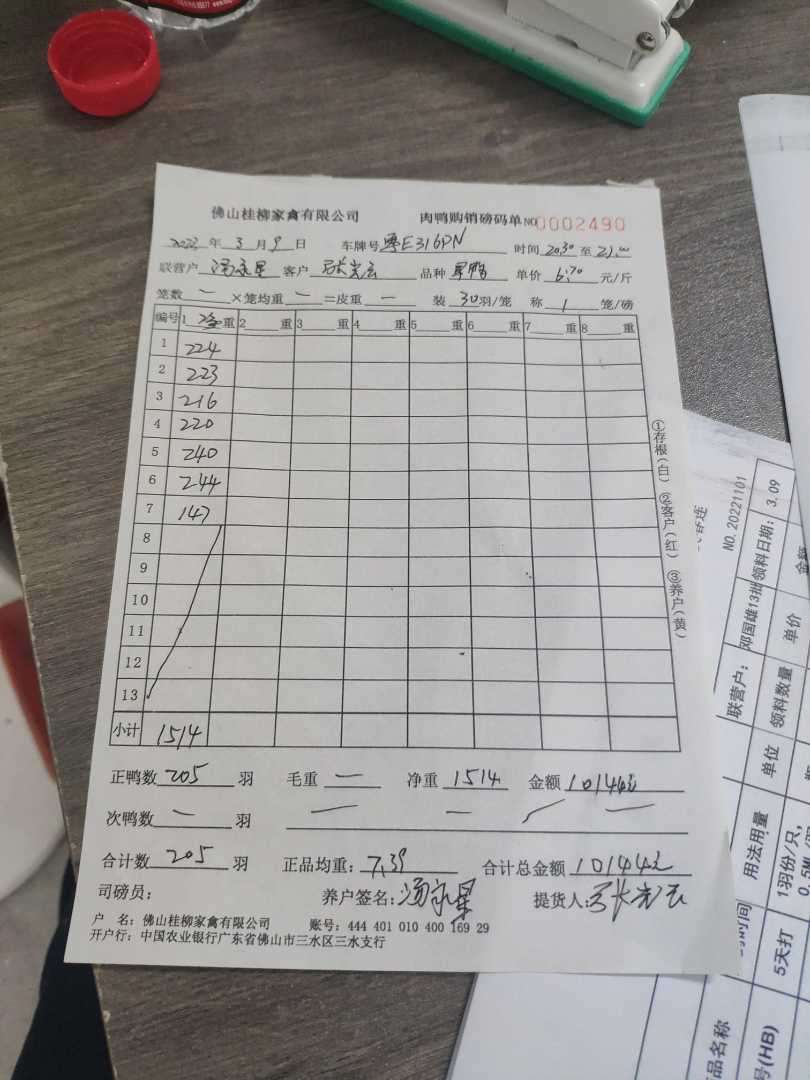 佛山桂柳家禽有限公司 肉鸭购销磅码单 NO 0002490
2023 年 3 月 9 日 车牌号 粤E316PN 时间 20:30 至 21:00
联营户 客户 品种 单价 6.70 元/斤
笼数 一 ×笼均重 一 =皮重 一 装 30 羽/笼 称 1 笼/磅
编号 1 重 2 重 3 重 4 重 5 重 6 重 7 重 8 重
1 224
2 223
3 216
4 220
5 240
6 244
7 147
8
9
10
11
12
13
小计 1514
①存根(白) ②客户(红) ③养户(黄)
正鸭数 205 羽 毛重 一 净重 1514 金额 10144元
次鸭数 一 羽
合计数 205 羽 正品均重: 7.39 合计总金额 10144元
司磅员: 养户签名: 提货人:
户 名: 佛山桂柳家禽有限公司 账号: 444 401 010 400 169 29
开户行: 中国农业银行广东省佛山市三水区三水支行
NO. 20221101
联营户: 邓国雄13批 领料日期: 3.09
单位 领料数量 单价
用法用量
1羽份/只,
5天打
品名称